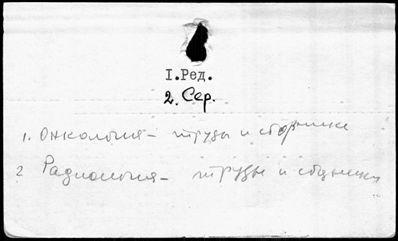 I.Ред.
2. Сер.
1. Онкология – труды и сборники
2 Радиология – труды и сборники